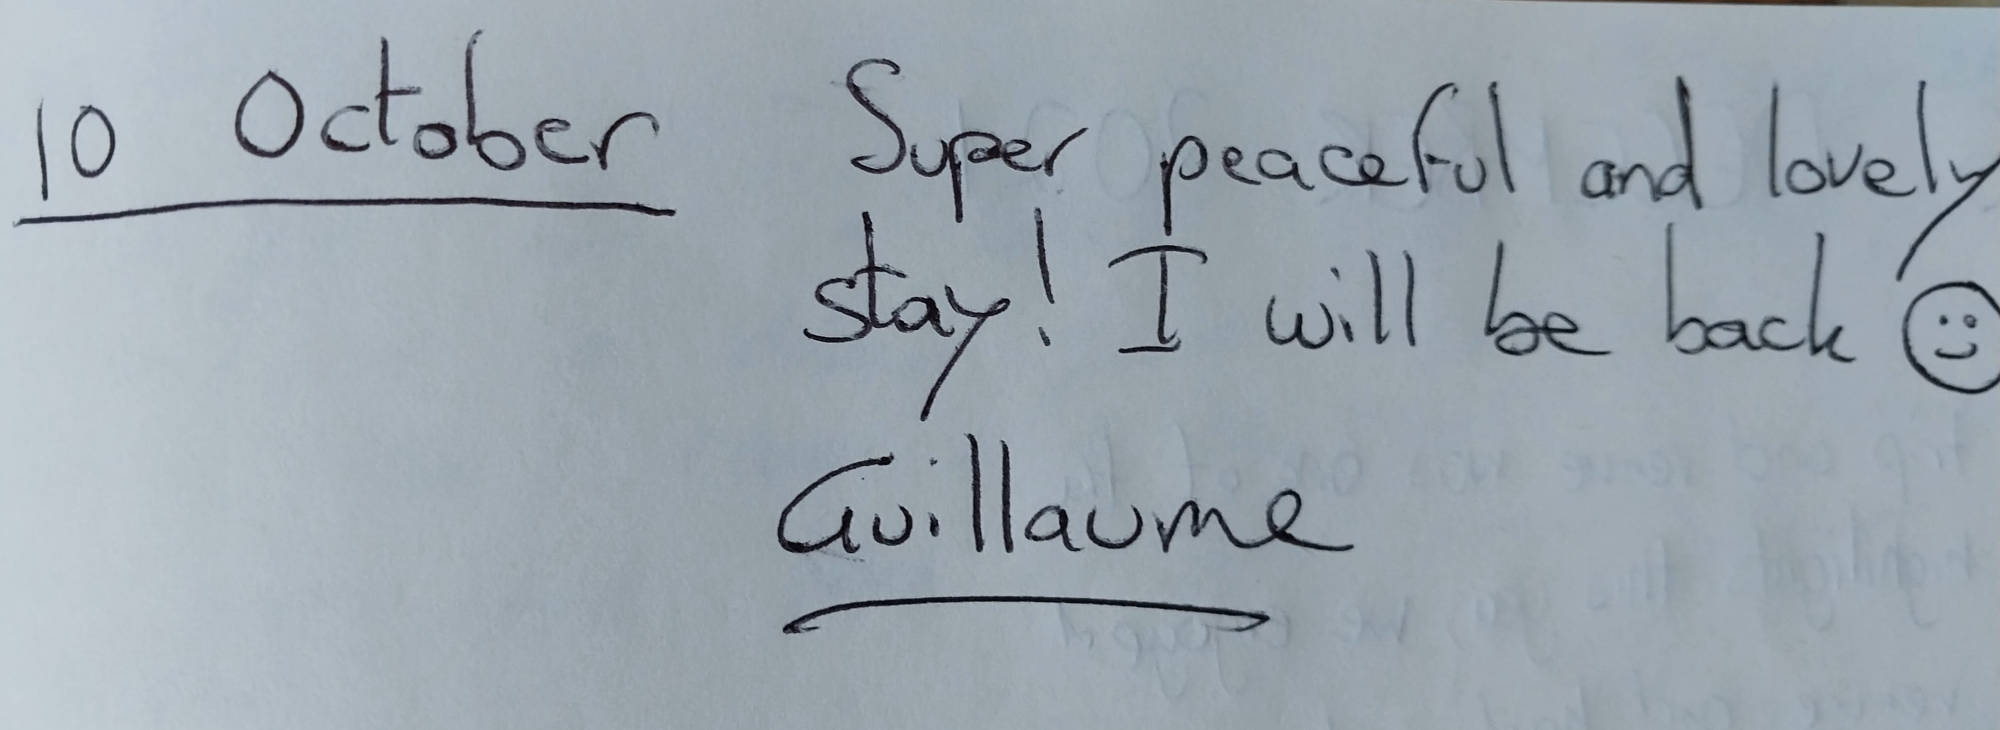 10 October
Super peaceful and lovely
stay! I will be back ☺
Guillaume